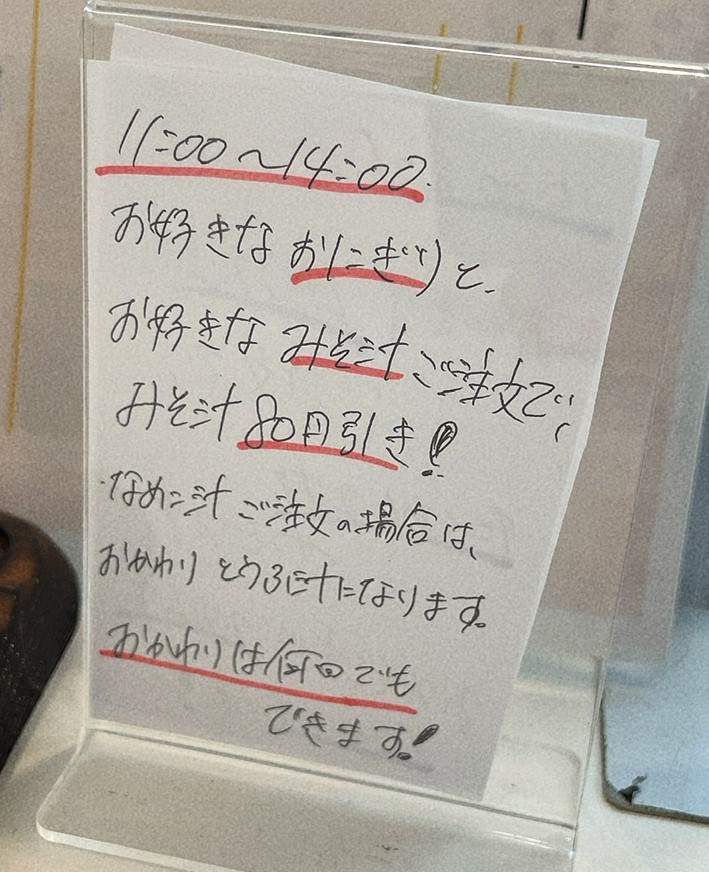 11:00〜14:00
お好きなおにぎりと、
お好きなみそ汁ご注文で、
みそ汁80円引き!
・なめこ汁ご注文の場合は、
おかわりとうふ汁になります。
おかわりは何回でも
できます!